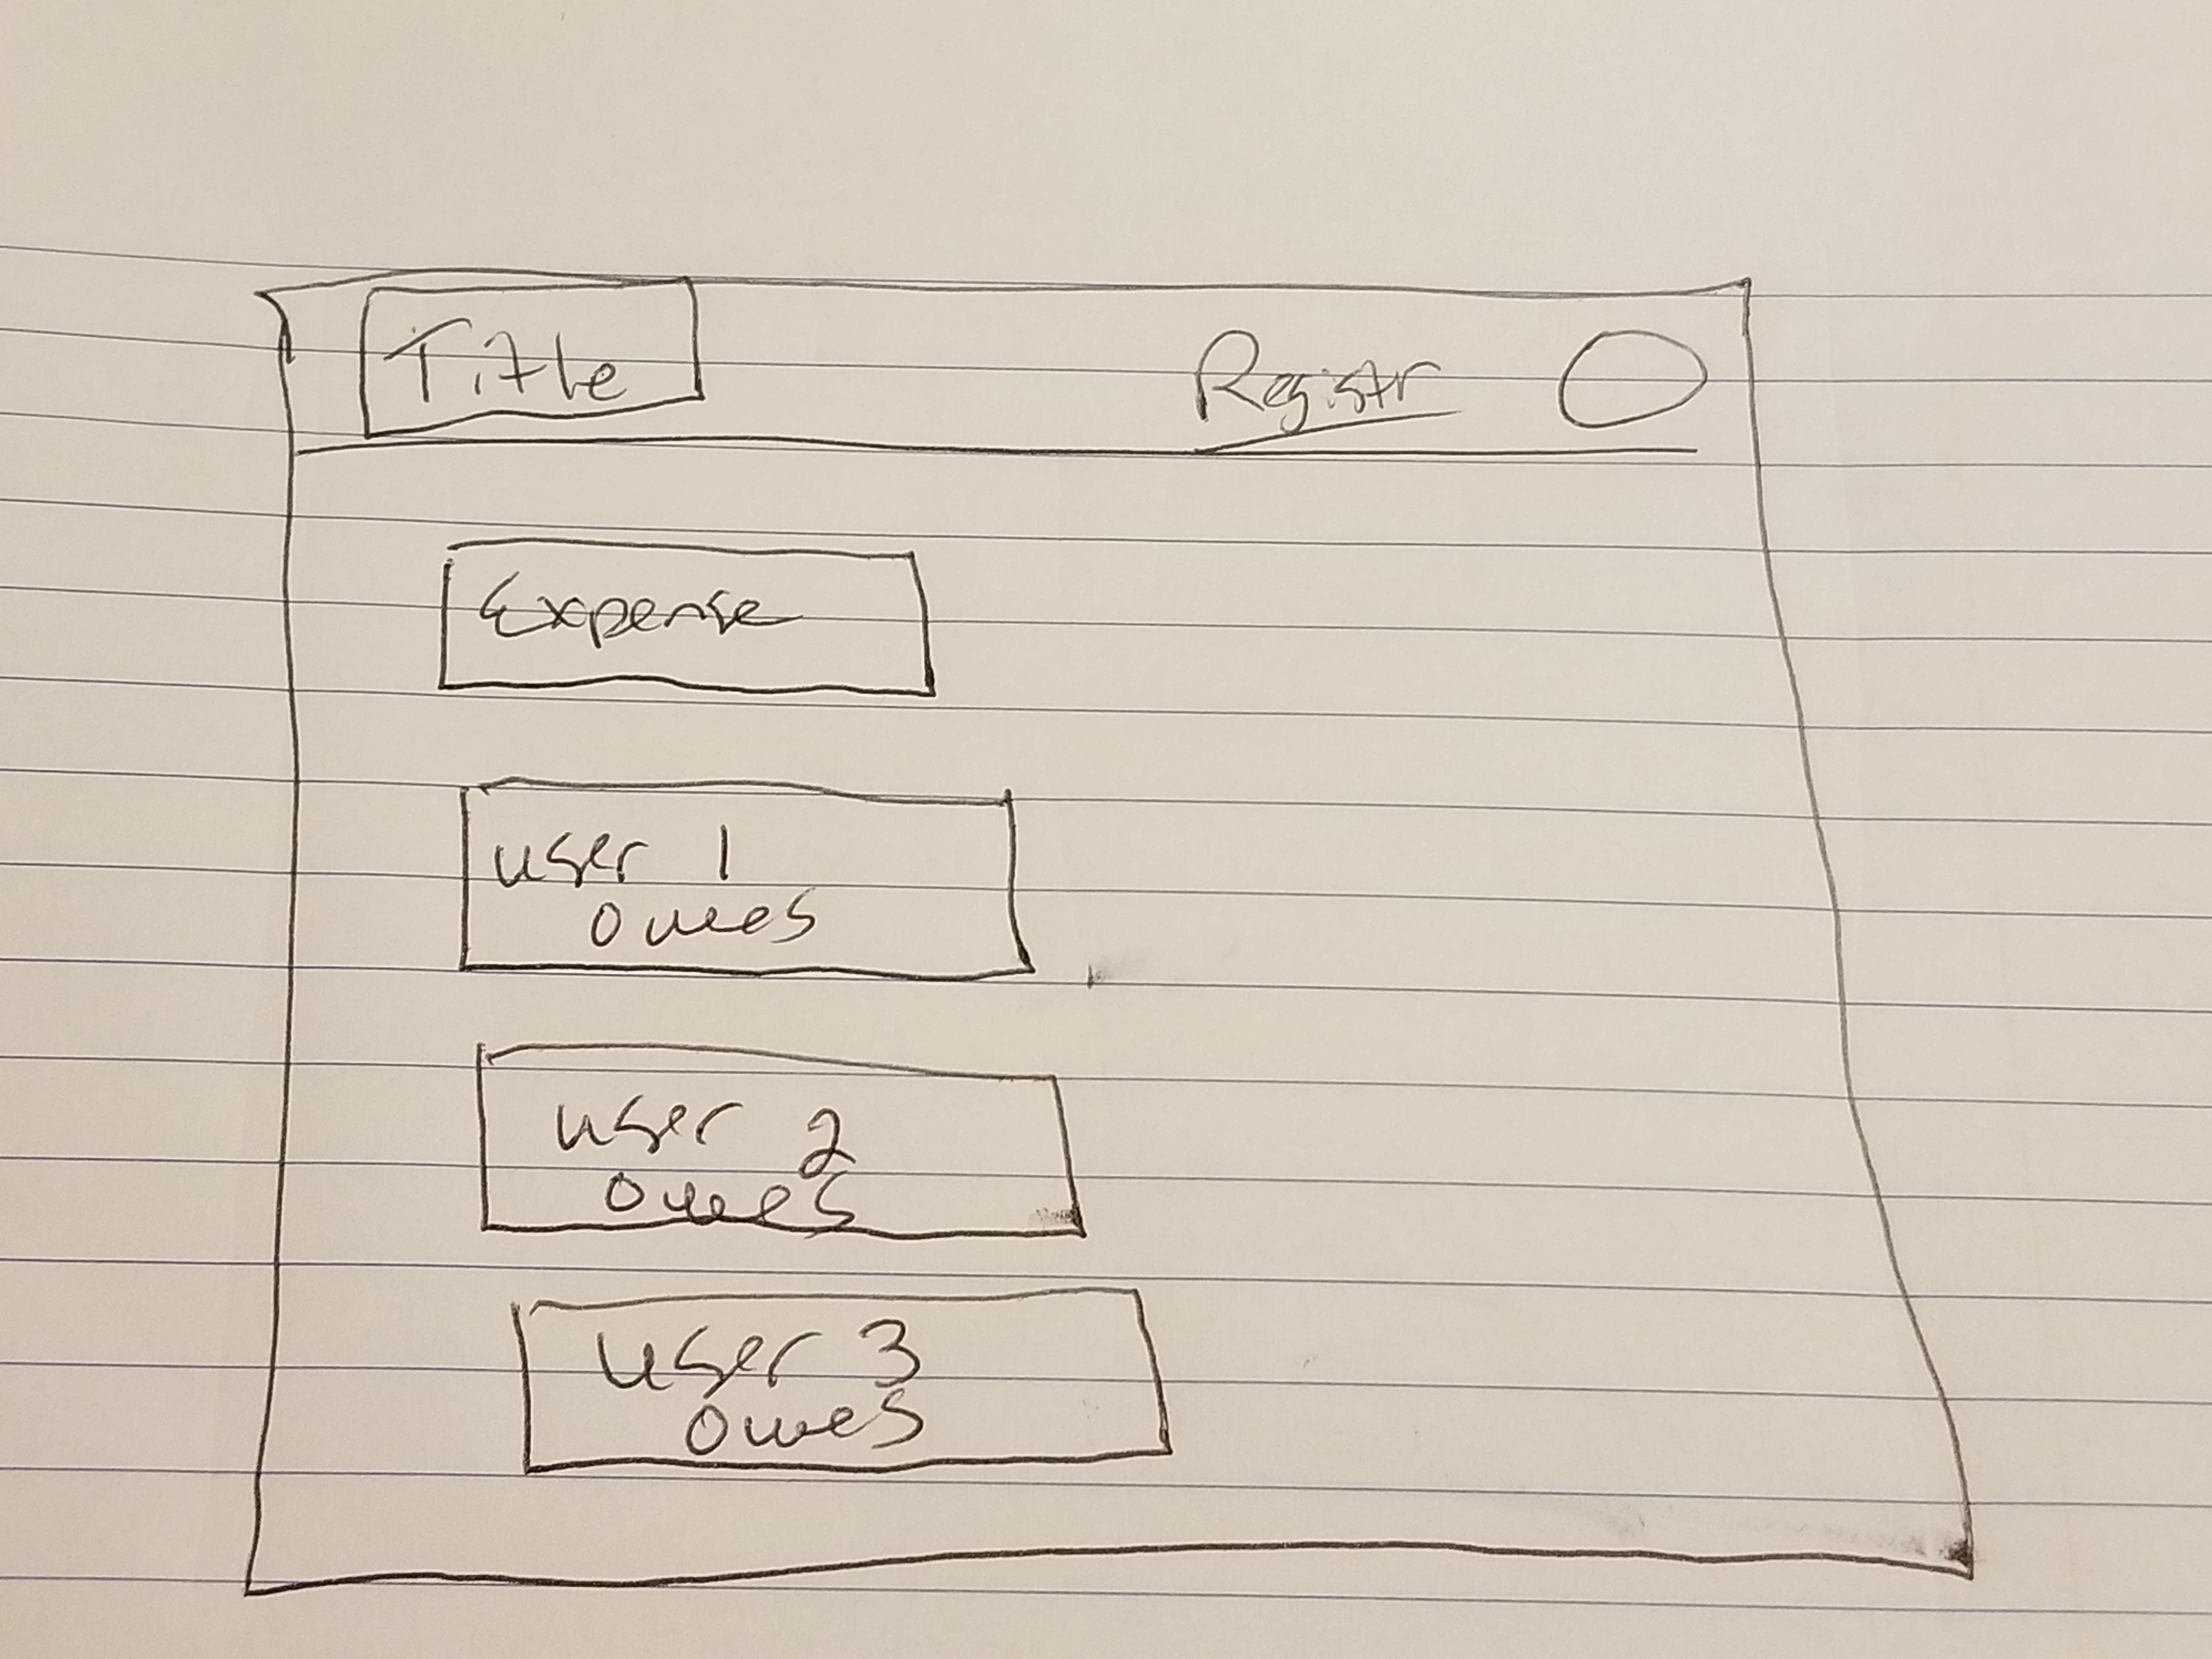 Title
Registr
Expense
user 1
owes
user 2
owes
user 3
owes